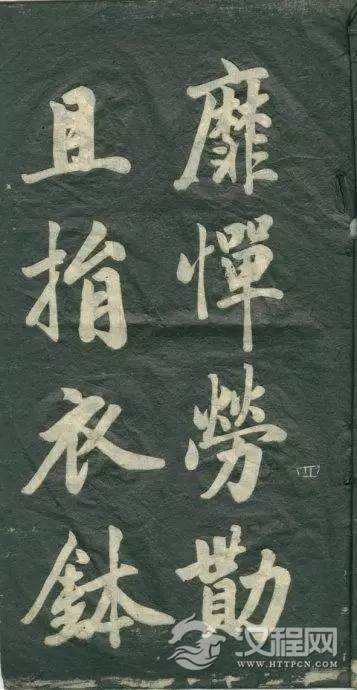 靡憚勞勩
且捐衣鉢
四
汉程网
WWW.HTTPCN.COM